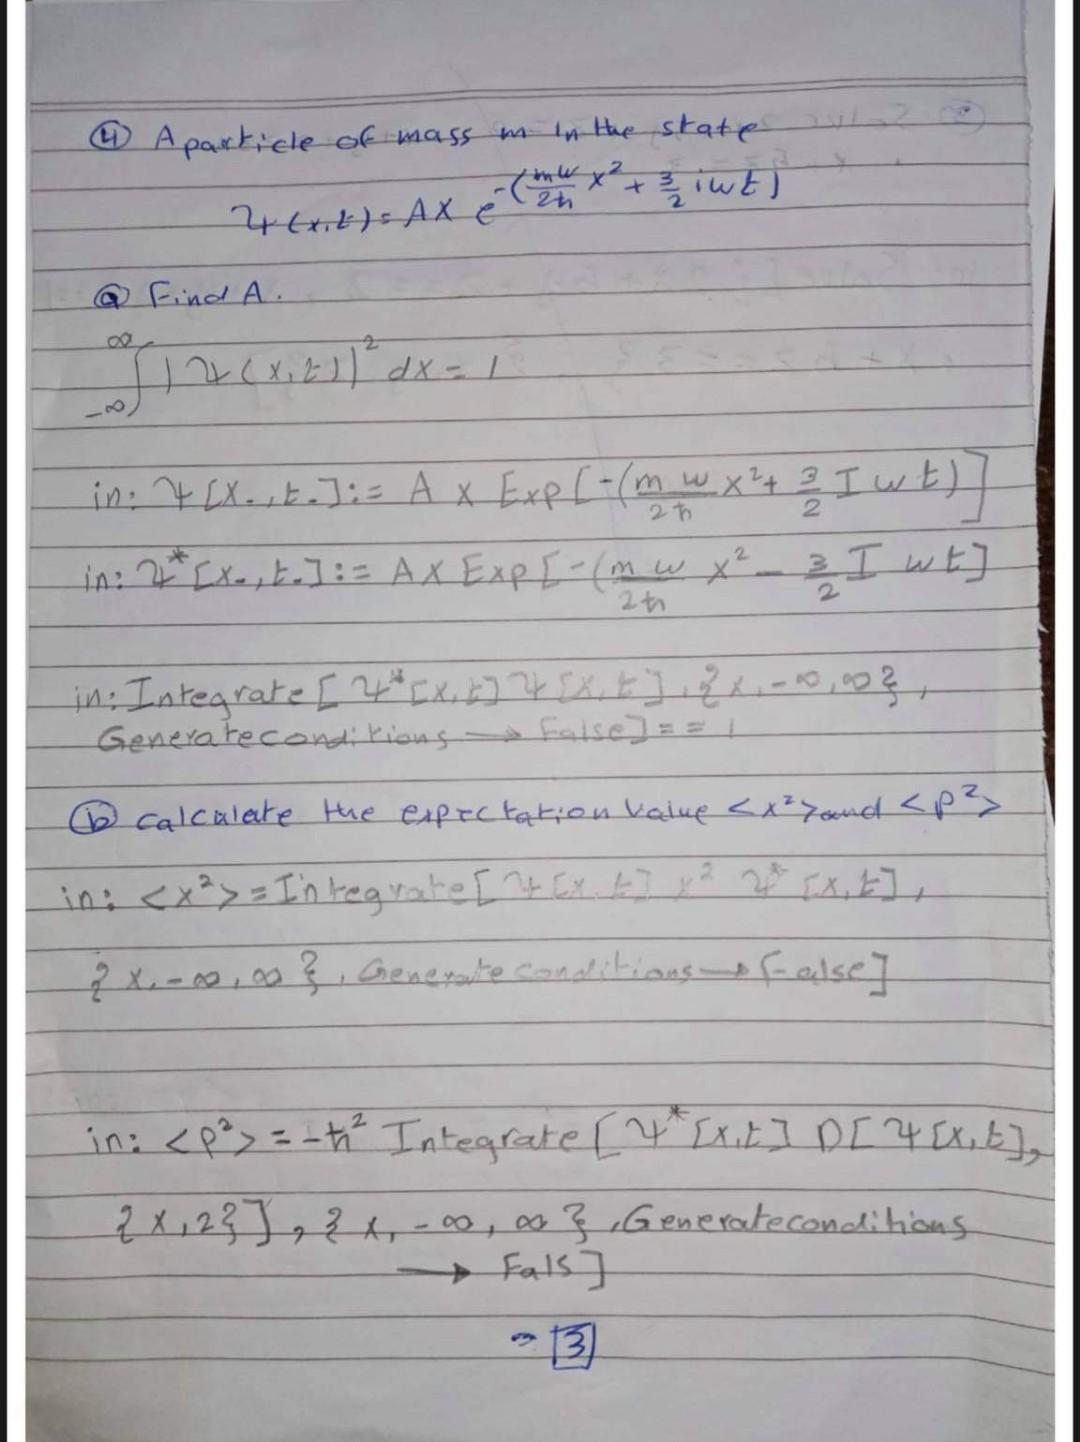 ④ A particle of mass m in the state
Ψ(x,t) = A x e^-(mw/2ħ x² + 3/2 iwt)
ⓐ Find A.
∫_-∞^∞ |Ψ(x,t)|² dx = 1
in: Ψ[x_,t_]:= A x Exp[-(m w/2ħ x² + 3/2 I w t)]
in: Ψ*[x_,t_]:= A x Exp[-(m w/2ħ x² - 3/2 I w t]
in: Integrate[Ψ*[x,t] Ψ[x,t], {x,-∞,∞},
Generateconditions → False] == 1
ⓑ calculate the expectation value <x²> and <p²>
in: <x²> = Integrate[Ψ[x,t] x² Ψ*[x,t],
{x,-∞,∞}, Generate conditions → False]
in: <p²> = -ħ² Integrate[Ψ*[x,t] D[Ψ[x,t],
{x,2}], {x,-∞,∞}, Generateconditions
→ Fals]
3